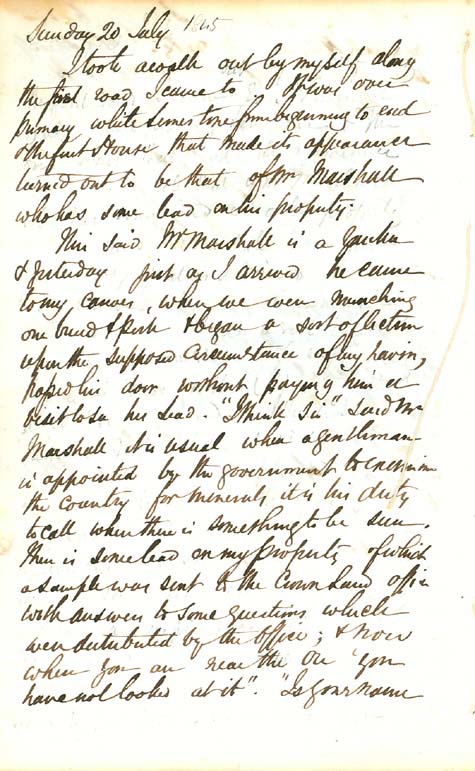 Sunday 20 July 1845
I took a walk out by myself along
the first road I came to It was over
primary white limestone from beginning to end
& the first House that made its appearance
turned out to be that of Mr Marshall
who has some lead on his property.
This said Mr Marshall is a
& yesterday just as I arrived he came
to my canoes, when we were munching
our bread & Pork & began a sort of lecture
upon the supposed circumstance of my having
passed his door without paying him a
visit to see his lead. "I think Sir" said Mr
Marshall it is usual when a gentleman
is appointed by the government to examine
the country for minerals it is his duty
to call when there is something to be seen.
There is some lead on my property of which
a sample was sent to the Crown Land office
with answers to some questions which
were distributed by the office; & now
when you are near the you
have not looked at it". "Is your name